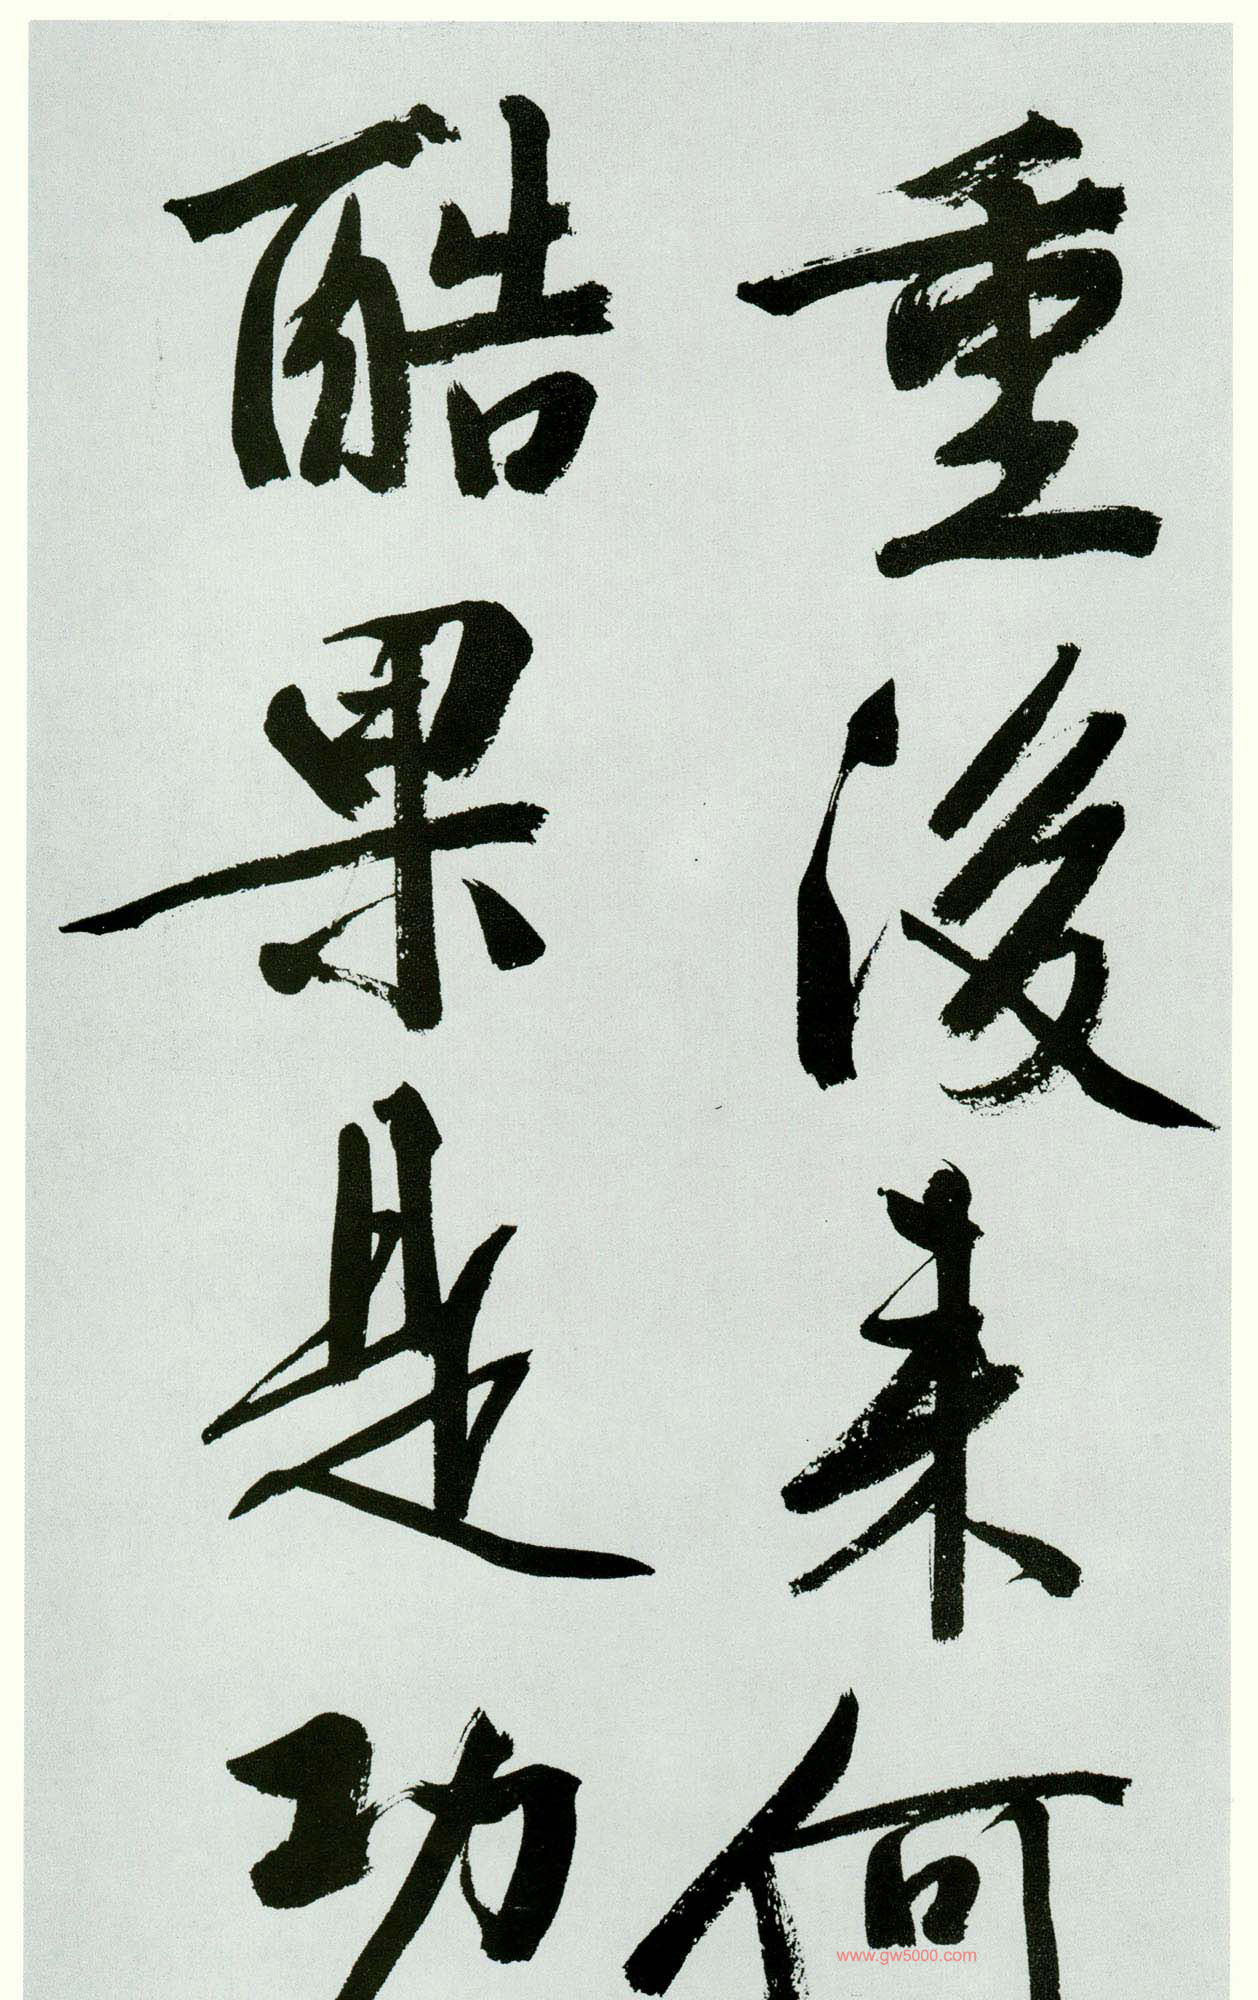 重後来何
酷果是功
www.gw5000.com